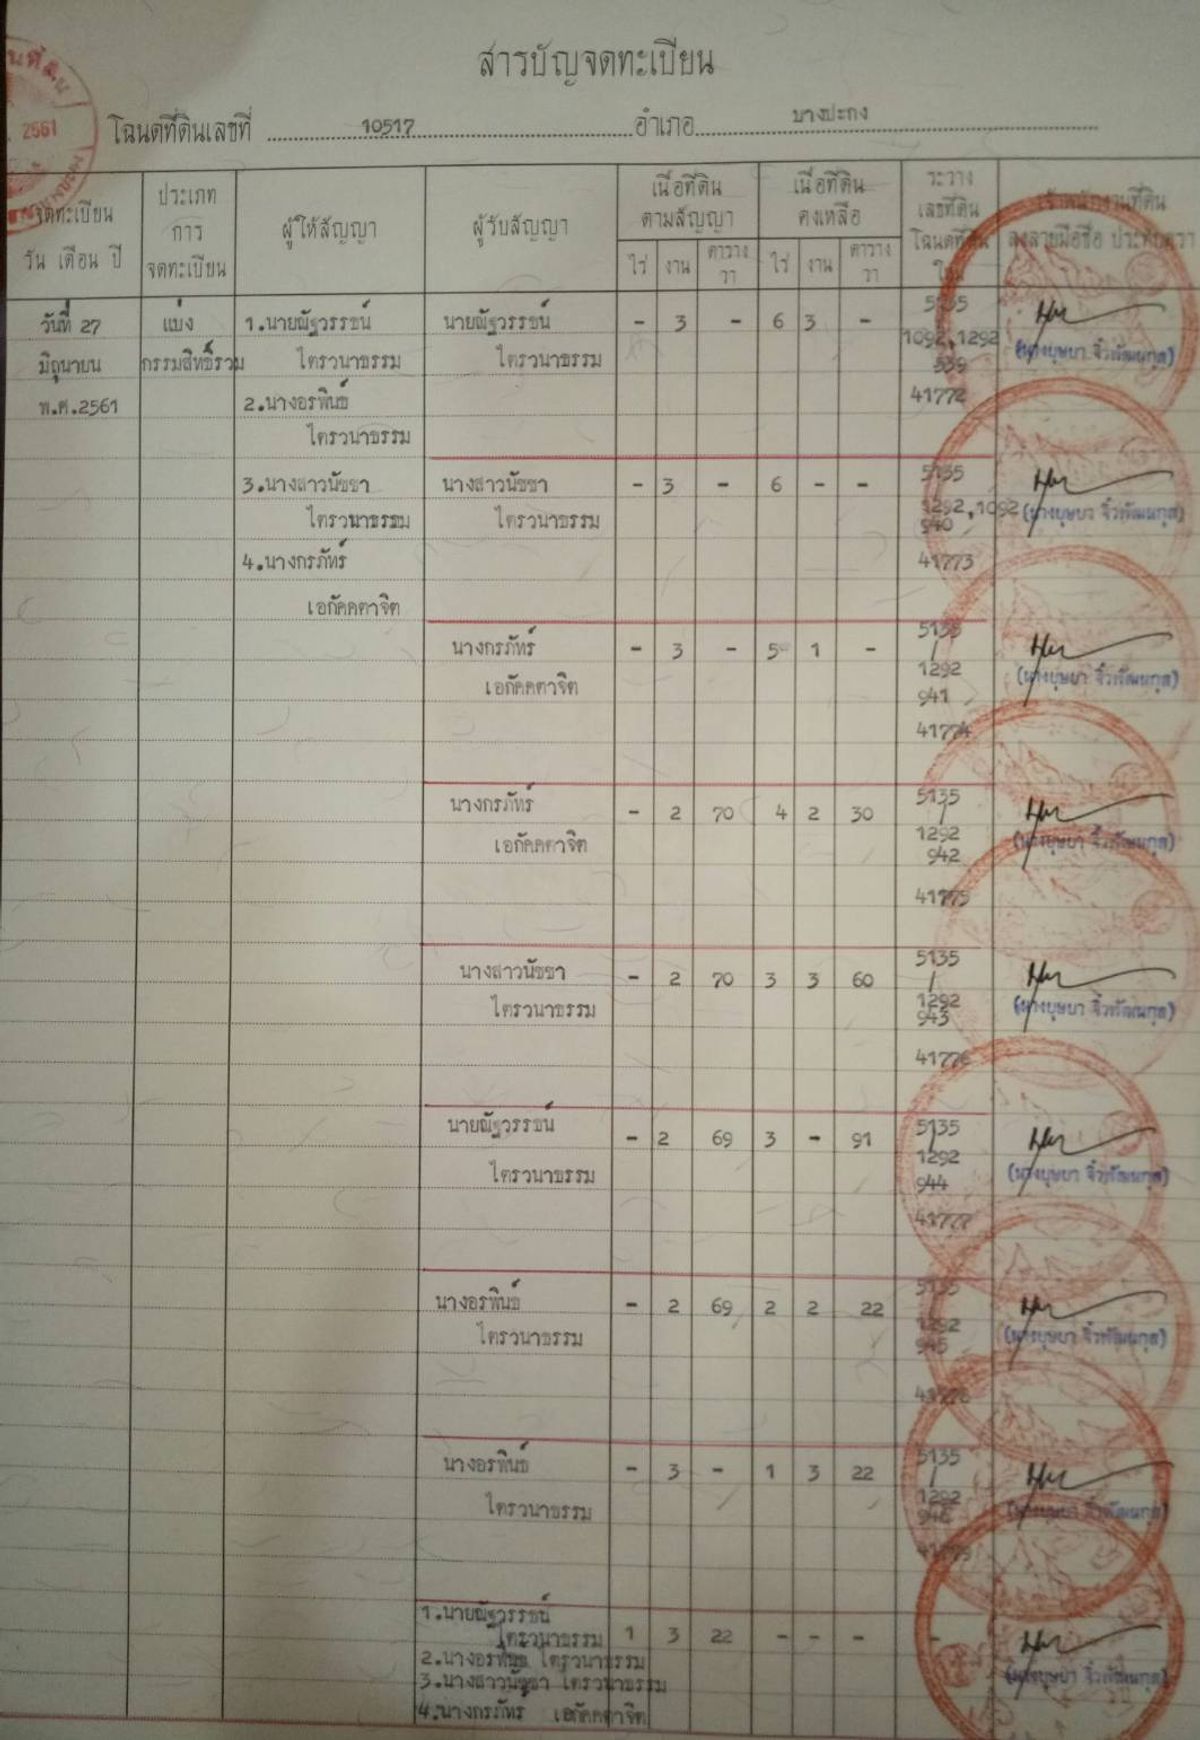 สารบัญจดทะเบียน
2561
โฉนดที่ดินเลขที่ 10517 อำเภอ บางปะกง
จดทะเบียน วัน เดือน ปี
ประเภท การ จดทะเบียน
ผู้ให้สัญญา
ผู้รับสัญญา
เนื้อที่ดิน ตามสัญญา
เนื้อที่ดิน คงเหลือ
ระวาง เลขที่ดิน โฉนดที่ดิน ใหม่
เจ้าพนักงานที่ดิน ลงลายมือชื่อ ประทับตรา
ไร่ งาน ตาราง วา ไร่ งาน ตาราง วา
วันที่ 27 แบ่ง 1.นายณัฐวรรธน์ นายณัฐวรรธน์ - 3 - 6 3 - 5135
1092,1292
มิถุนายน กรรมสิทธิ์รวม ไตรวนาธรรม ไตรวนาธรรม 939 (นางบุษบา จิ๋วพัฒนกุล)
พ.ศ.2561 2.นางอรพินธ์ 41772
ไตรวนาธรรม
3.นางสาวนัชชา นางสาวนัชชา - 3 - 6 - - 5135
ไตรวนาธรรม ไตรวนาธรรม 1292,1092 (นางบุษบา จิ๋วพัฒนกุล)
940
4.นางกรภัทร์ 41773
เอกัคคตาจิต
นางกรภัทร์ - 3 - 5 1 - 5135
1292
เอกัคคตาจิต 941 (นางบุษบา จิ๋วพัฒนกุล)
41774
นางกรภัทร์ - 2 70 4 2 30 5135
1292
เอกัคคตาจิต 942 (นางบุษบา จิ๋วพัฒนกุล)
41775
นางสาวนัชชา - 2 70 3 3 60 5135
1292
ไตรวนาธรรม 943 (นางบุษบา จิ๋วพัฒนกุล)
41776
นายณัฐวรรธน์ - 2 69 3 - 91 5135
1292
ไตรวนาธรรม 944 (นางบุษบา จิ๋วพัฒนกุล)
41777
นางอรพินธ์ - 2 69 2 2 22 5135
1292
ไตรวนาธรรม 945 (นางบุษบา จิ๋วพัฒนกุล)
41778
นางอรพินธ์ - 3 - 1 3 22 5135
1292
ไตรวนาธรรม 946 (นางบุษบา จิ๋วพัฒนกุล)
1.นายณัฐวรรธน์
ไตรวนาธรรม 1 3 22 - - - -
2.นางอรพินธ์ ไตรวนาธรรม
3.นางสาวนัชชา ไตรวนาธรรม (นางบุษบา จิ๋วพัฒนกุล)
4.นางกรภัทร์ เอกัคคตาจิต